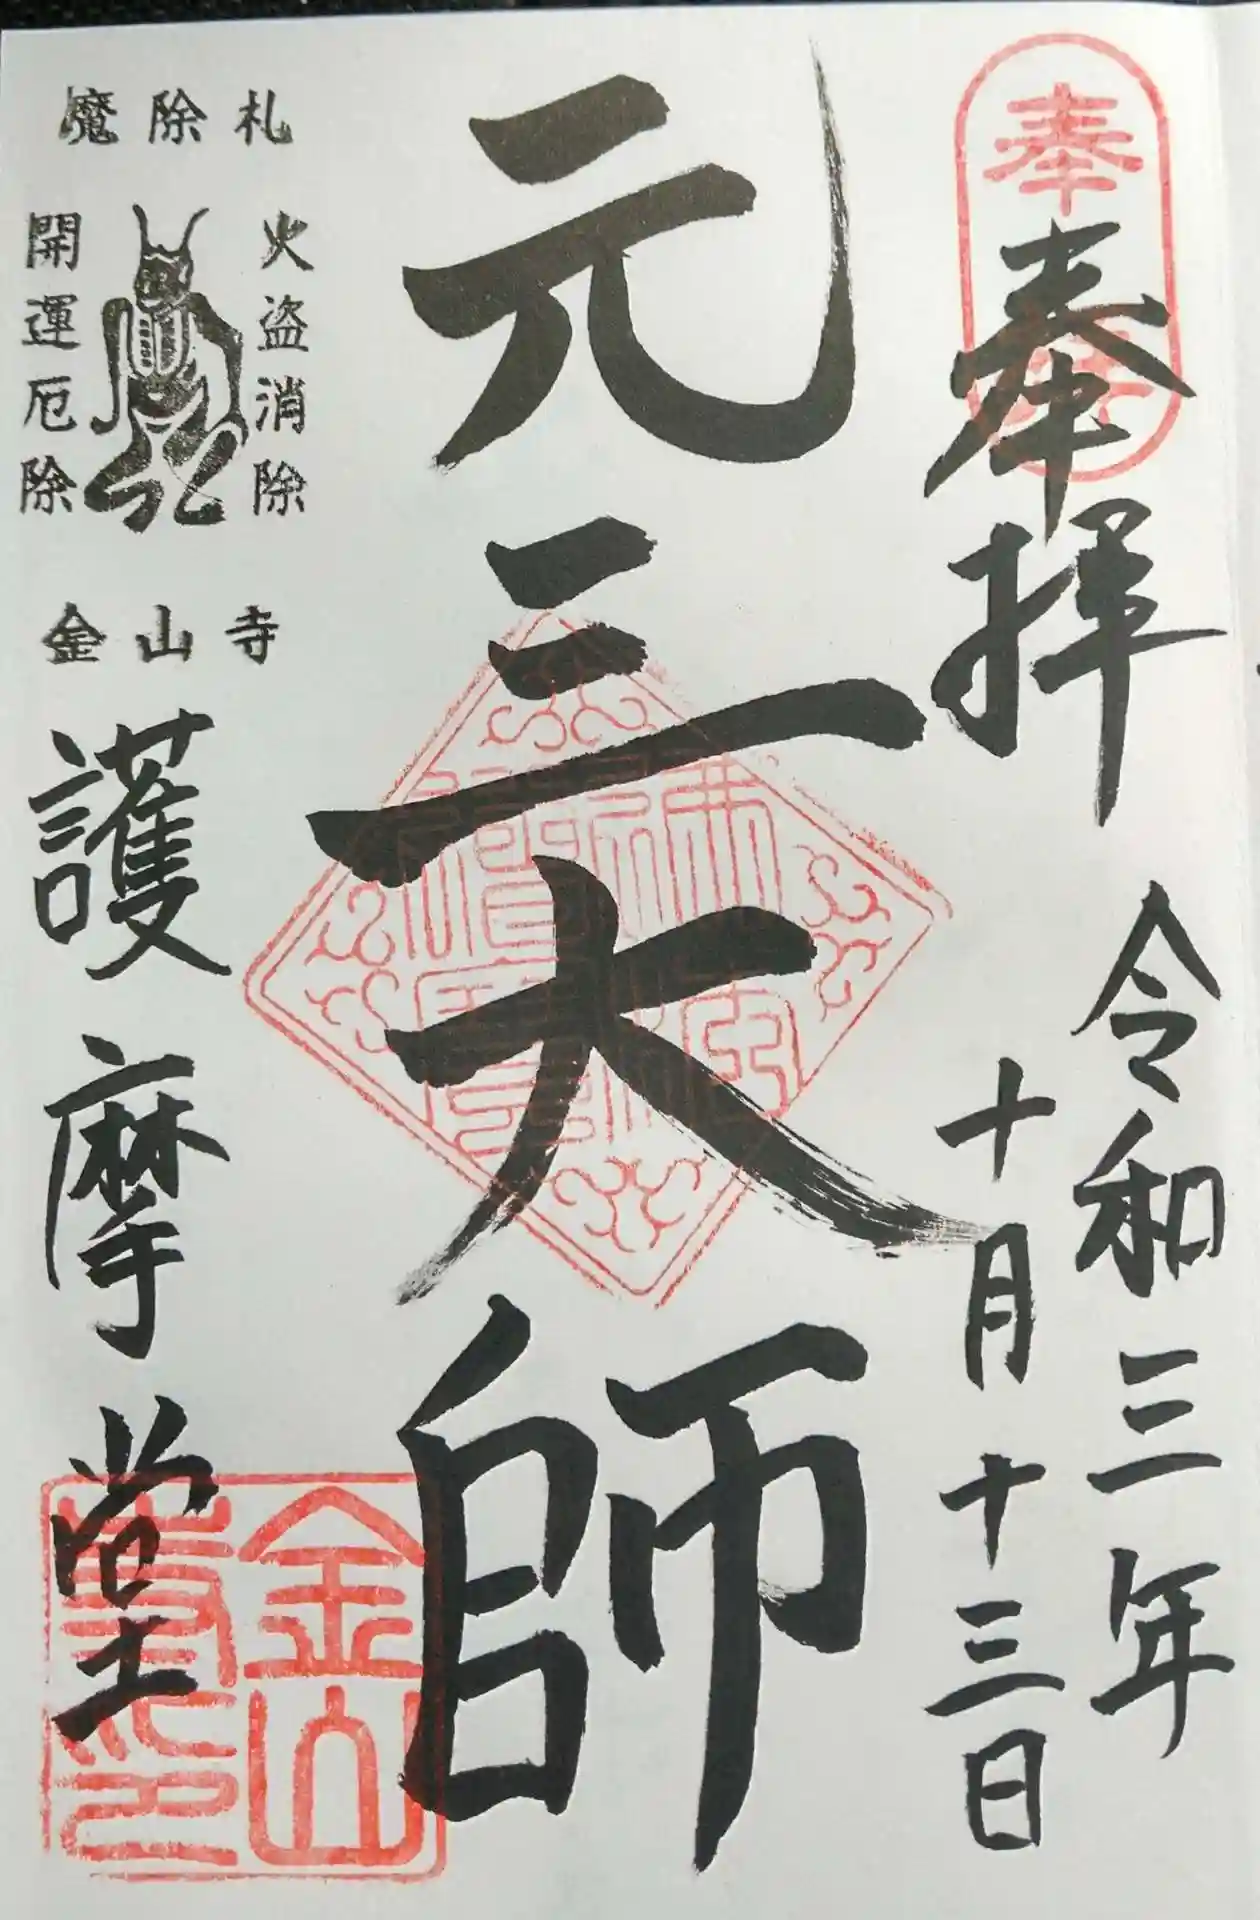 奉拝
令和三年
十月十三日
元三大師
魔除札
火盗消除
開運厄除
金山寺
護摩堂
金山